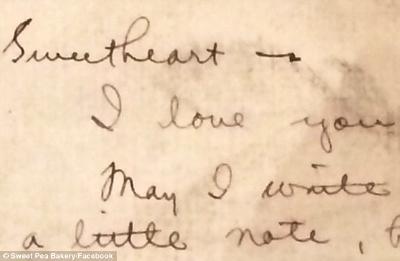 Sweetheart —
I love you
May I write
a little note,
© Sweet Pea Bakery/Facebook